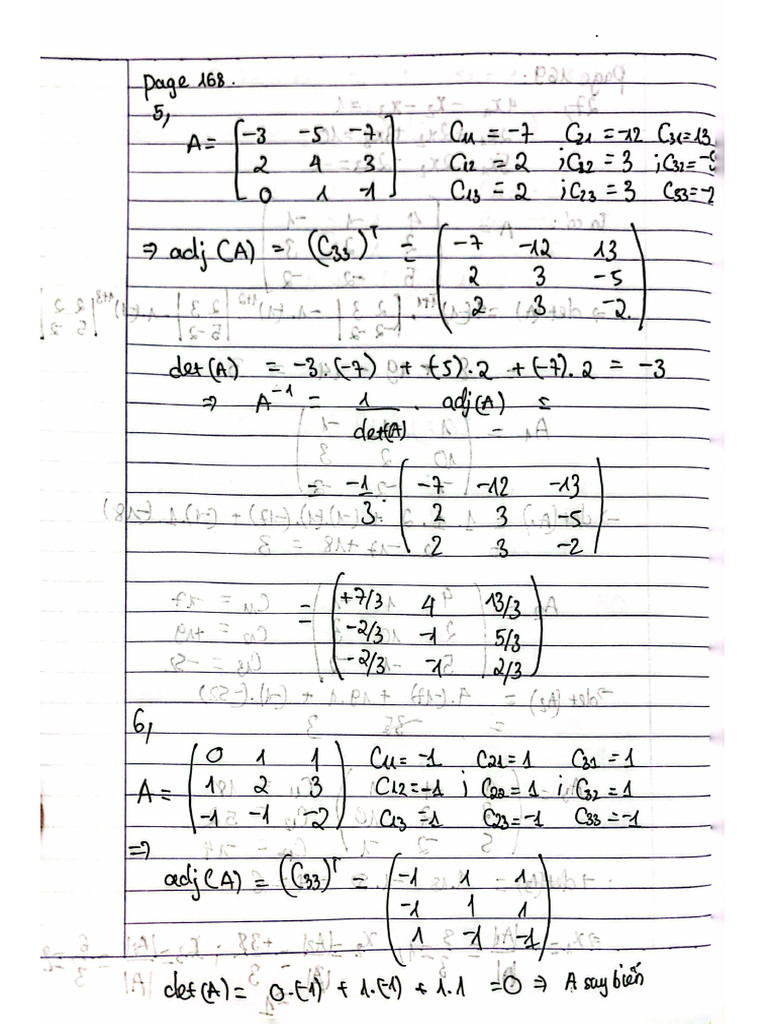 Page 168.
5,
A = [ -3 -5 -7   C11 = -7   C21 = -12   C31 = 13
2 4 3   C12 = 2   ; C22 = 3   ; C32 = -5
0 1 -1 ]   C13 = 2   ; C23 = 3   C33 = -2
⇒ adj(A) = (C33)^T = ( -7 -12 13
2 3 -5
2 3 -2 )
det(A) = -3.(-7) + (-5).2 + (-7).2 = -3
⇒ A^-1 = 1/det(A) . adj(A) =
= -1/3 . ( -7 -12 -13
2 3 -5
2 3 -2 )
= ( +7/3 4 13/3
-2/3 -1 5/3
-2/3 -1 2/3 )
6,
A = ( 0 1 1   C11 = -1   C21 = 1   C31 = 1
1 2 3   C12 = -1   ; C22 = 1   ; C32 = 1
-1 -1 -2 )   C13 = 1   C23 = -1   C33 = -1
⇒
adj(A) = (C33)^T = ( -1 1 1
-1 1 1
1 -1 -1 )
det(A) = 0.(-1) + 1.(-1) + 1.1 = 0 ⇒ A suy biến